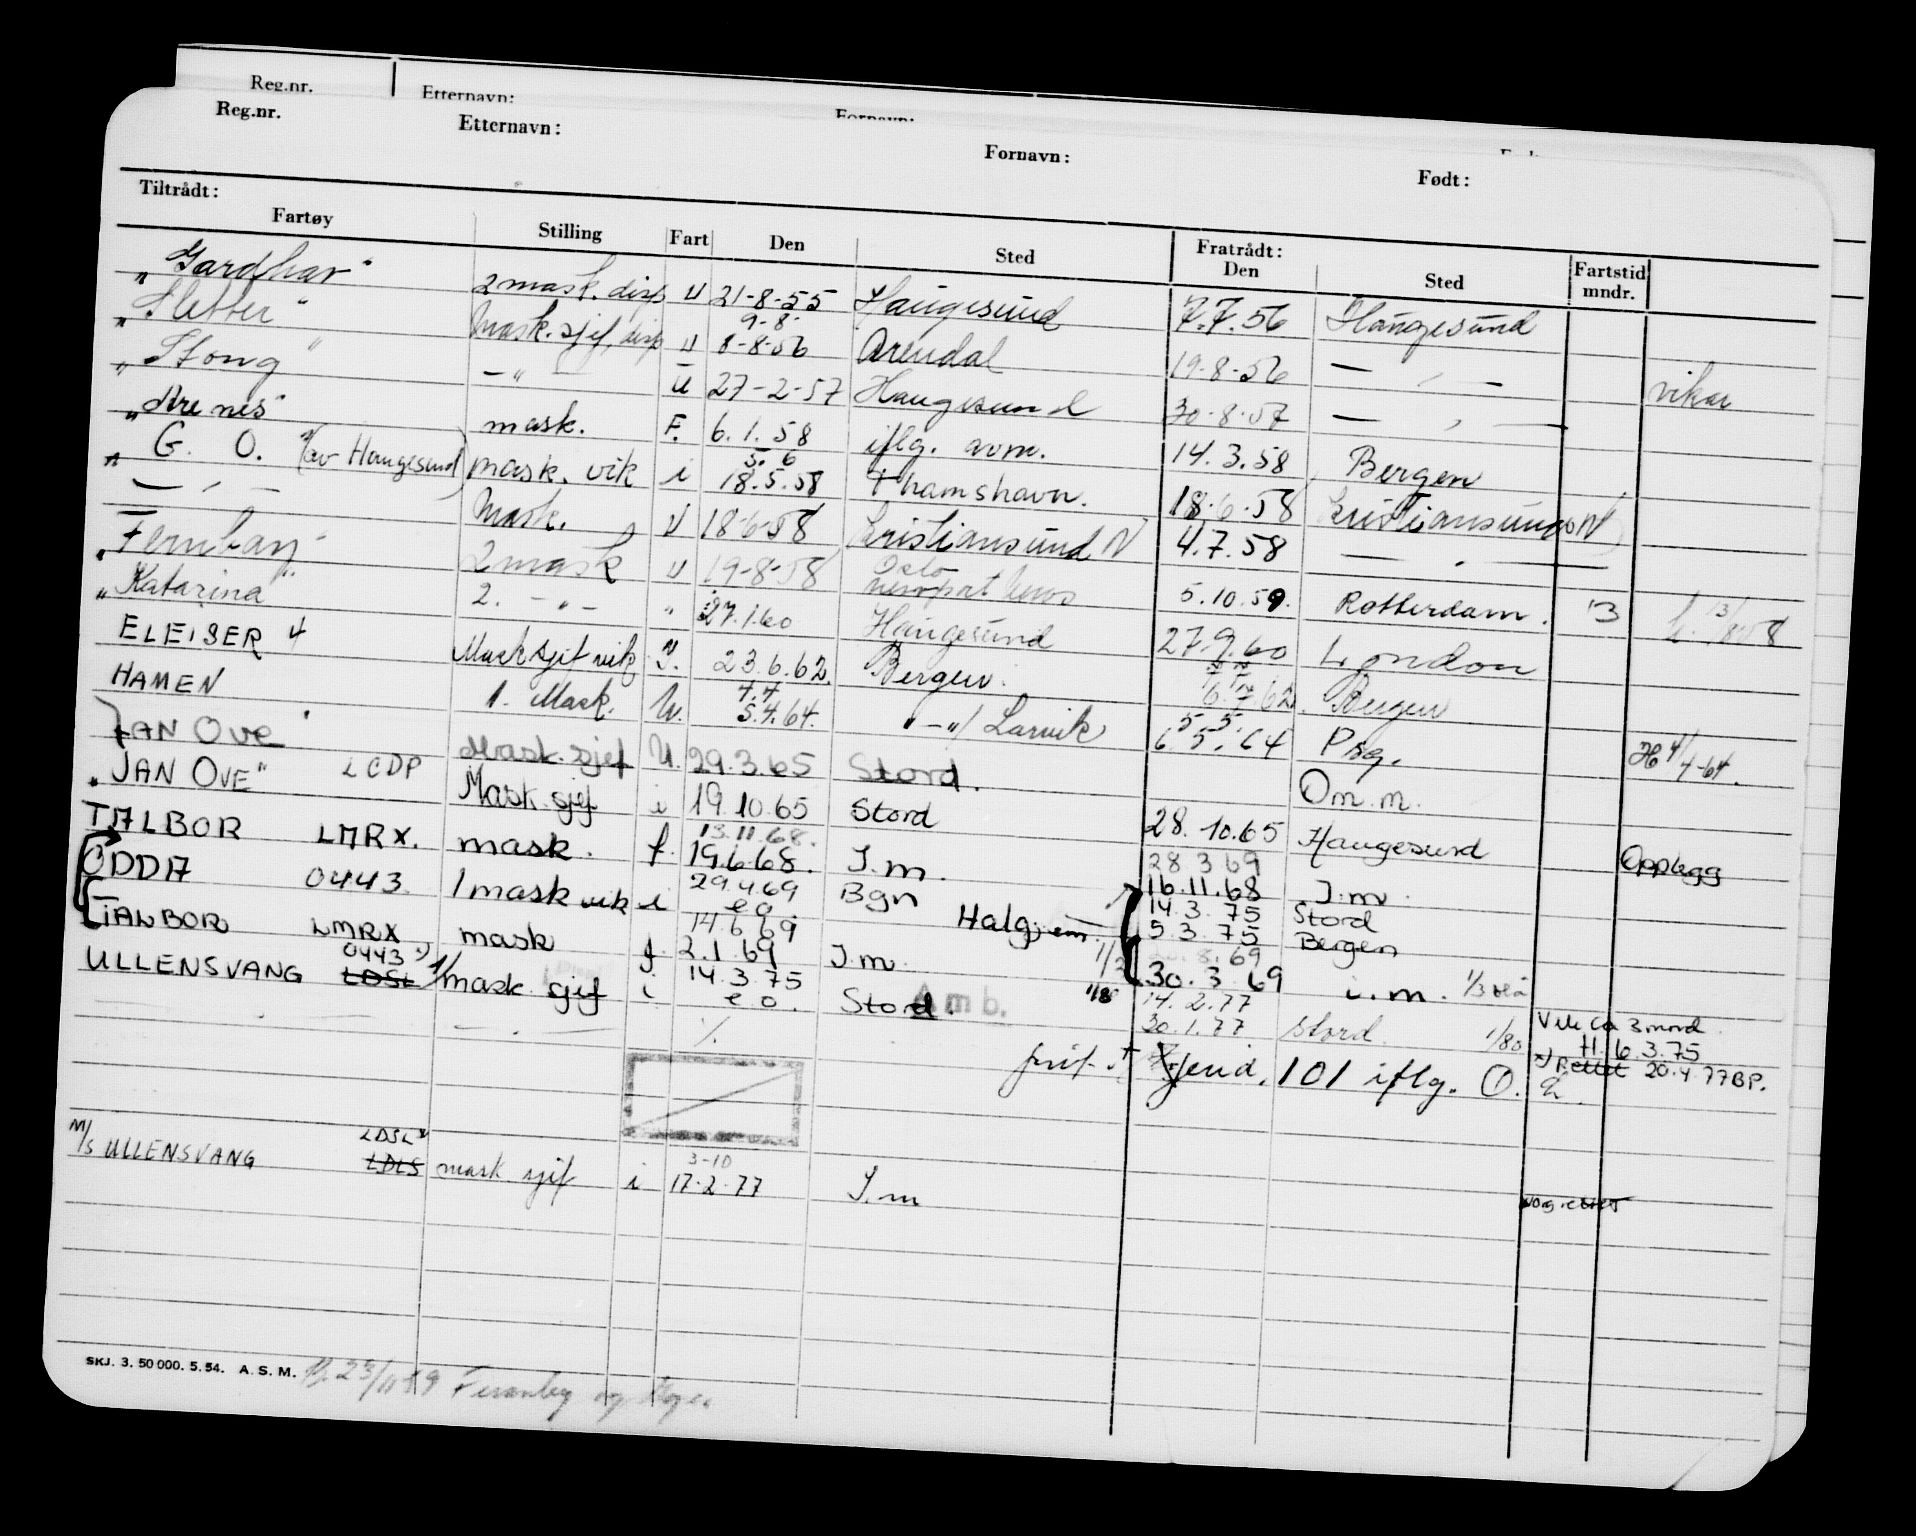 Reg.nr. Etternavn:
Reg.nr. Etternavn: Fornavn: Født:
Tiltrådt: Fratrådt:
Fartøy Stilling Fart Den Sted Den Sted Fartstid mndr.
"Gardhav" 2 mask. disp U 21-8-55 Haugesund 7.7.56 Haugesund
9-8-
"Sletter" Mask.sjef, disp U 8-8-56 Arendal 19-8-56 — " — vikar
"Stong" — " — U 27-2-57 Haugesund 30-8-57 — " —
mask. F. 6.1.58 iflg. 14.3.58 Bergen
5. 6
"G. O. (av Haugesund) mask. vik i 18.5.58 Thamshavn. 18.6.58 Kristiansund N
— " — Mask. U 18-6-58 Kristiansund N 4.7.58 — " —
"Fernbay" 2 mask U 19-8-58 Oslo 5.10.59. Rotterdam. 13
"Katarina" 2. — " — " 27.1.60 Haugesund 27.9.60 London
ELEISER 4 Mask sjef vik I. 23.6.62. Bergen. Bergen
4.4 5.5
HAMEN 1. Mask. U. 5.4.64. " — " / Larvik 6.5.64 Psg. 4/4-64.
JAN OVE Mask.sjef U. 29.3.65 Stord. Om m.
"JAN OVE" LCDP Mask.sjef i 19.10.65 Stord 28.10.65 Haugesund Opplegg
13.11.68. 28 3 69
TALBOR LMRX. mask. f. 19.6.68. I.m. 16.11.68 I.m.
29.4.69 14.3.75 Stord
ODDA 0443 1 mask vik i e o Bgn Halg. em. 5.3.75 Bergen
14.6.69
TALBOR LMRX mask f 2.1.69 I.m. 30.3.69 i.m. 1/3
0443 x) 14.3.75 14.2.77
ULLENSVANG LDSL 1/mask sjef i e o. Stord. Amb. 1/8 30.1.77 Stord. 1/80
— " — %
Vik ca 3 mnd.
H. 6.3.75
x) Rettet 20.4.77 BP.
101 iflg. O.
LDSL x 3-10
M/S ULLENSVANG LDLS mask sjef i 17-2-77 I.m
SKJ. 3. 50 000. 5. 54. A. S. M.